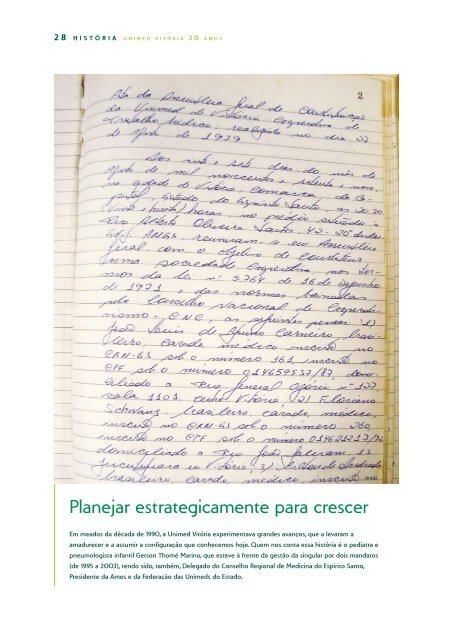 28 HISTÓRIA UNIMED VITÓRIA 30 ANOS
2
Ata da Assembleia Geral de Constituição
da Unimed de Vitória Cooperativa de
Trabalho Médico, realizada no dia
de de 1979.
Aos vinte e sete dias do mês de
de mil novecentos e setenta e nove,
na cidade de Vitória, Comarca da Ca-
pital, Estado do Espírito Santo, às 20:30
(vinte e trinta) horas, no prédio situado à
Rua Alberto Oliveira Santos, 42 - 20º andar
Edf. AMES, reuniram-se em Assembleia
Geral, com o objetivo de constituir
uma sociedade Cooperativa nos ter-
mos da lei nº 5.764 de 16 de dezembro
de 1971 e das normas baixadas
pelo Conselho Nacional de Cooperati-
vismo - CNC, as seguintes pessoas: 1)
João Luis de Carneiro, brasi-
leiro, casado, médico inscrito no
sob o número 161, inscrito no
CPF sob o número 014659537/87, domi-
ciliado a Rua General Osório nº 127
sala 1101, centro Vitória; 2) Floriano
Schwanz, brasileiro, casado, médico,
inscrito no sob o número 260,
inscrito no CPF sob o número
domiciliado a Rua João 13
Jucutuquara em Vitória; 3) de Andrade
brasileiro, casado, médico, inscrito no
Planejar estrategicamente para crescer
Em meados da década de 1990, a Unimed Vitória experimentava grandes avanços, que a levaram a
amadurecer e a assumir a configuração que conhecemos hoje. Quem nos conta essa história é o pediatra e
pneumologista infantil Gerson Thomé Marino, que esteve à frente da gestão da singular por dois mandatos
(de 1995 a 2003), tendo sido, também, Delegado do Conselho Regional de Medicina do Espírito Santo,
Presidente da Ames e da Federação das Unimeds do Estado.